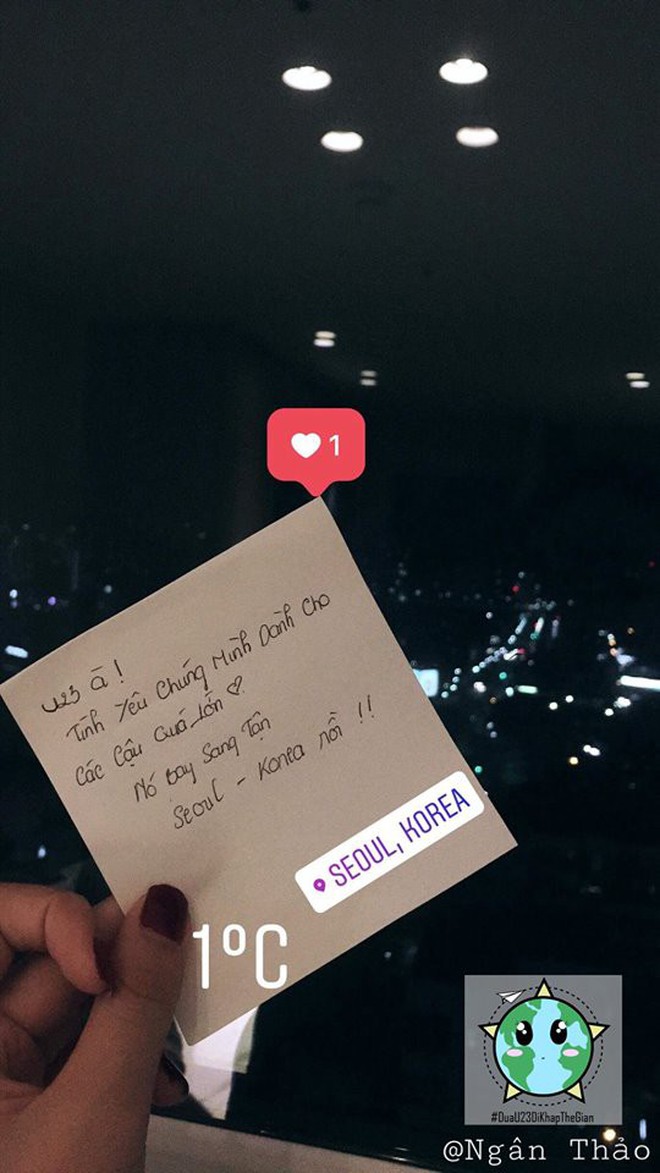 1
U23 à!
Tình Yêu Chúng Mình Dành Cho
Các Cậu Quá Lớn
Nó Bay Sang Tận
Seoul - Korea rồi !!
SEOUL, KOREA
1°C
#DuaU23DiKhapTheGian
@Ngân Thảo